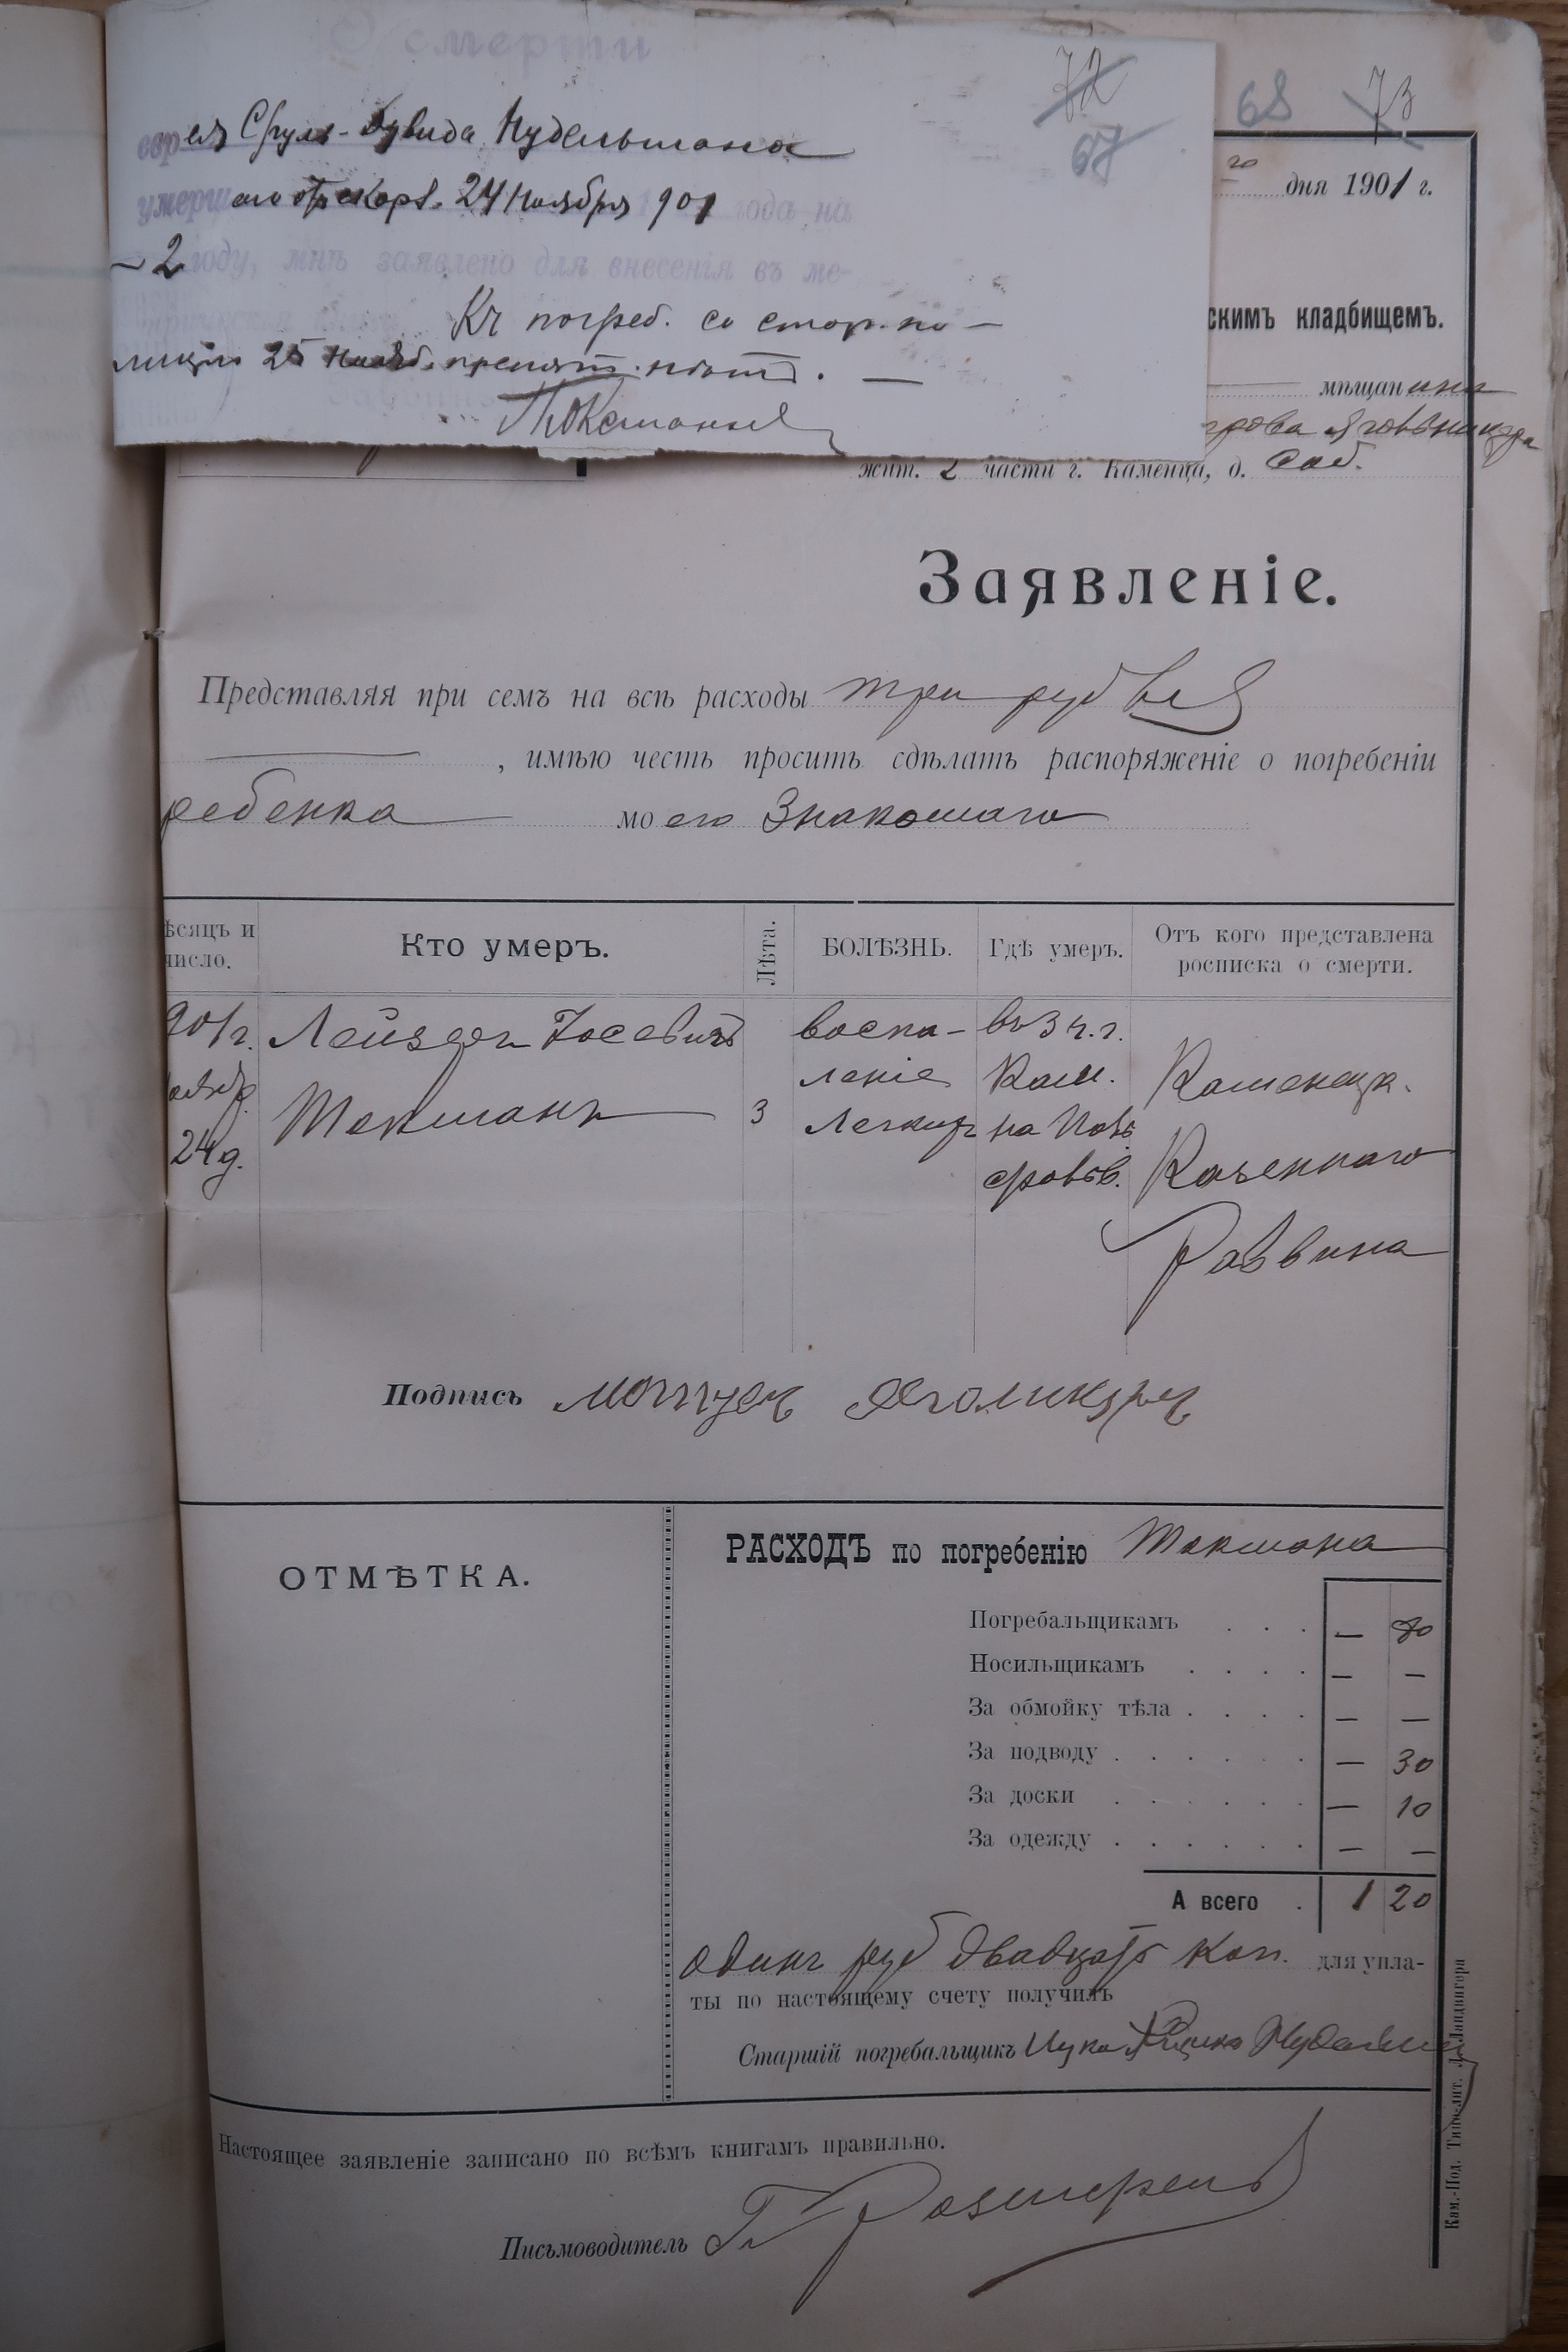 О смерти
72
67
еврея Сруль-Дувида Нудельмана
умершаго от скарл. 24 Ноября 901 года на
2 году, мнѣ заявлено для внесенія въ ме-
Къ погреб. со стор. по-
лиціи 25 Нояб. препят. нѣтъ.
68 73
го дня 1901 г.
скимъ кладбищемъ.
мѣщанина
жит. 2 части г. Каменца, д. Соб.
Заявленіе.
Представляя при семъ на всѣ расходы три рубля
, имѣю честь просить сдѣлать распоряженіе о погребеніи
ребенка моего Знакомаго
ѣсяцъ и число.
Кто умеръ.
Лѣта.
БОЛѢЗНЬ.
Гдѣ умеръ.
Отъ кого представлена росписка о смерти.
901г. Лейзеръ Іосевичъ воспа- въ 3 ч. г.
ноябр. леніе Кам. Каменецк.
24 д. Токманъ 3 Легкихъ на Нов.
Казеннаго
Раввина
Подпись
РАСХОДЪ по погребенію Токмана
ОТМѢТКА.
Погребальщикамъ . . . — 80
Носильщикамъ . . . . — —
За обмойку тѣла . . . . — —
За подводу . . . . . . — 30
За доски . . . . . . — 10
За одежду . . . . . . — —
А всего . 1 20
одинъ руб двадцать коп. для упла-
ты по настоящему счету получилъ
Старшій погребальщикъ
Настоящее заявленіе записано по всѣмъ книгамъ правильно.
Письмоводитель
Кам.-Под. Типо-лит. Д. Ландвигера